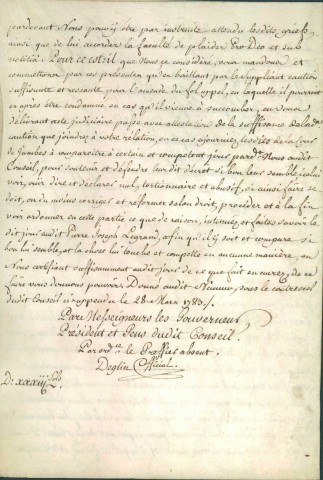 pardevant Nous pour y être par instruite attendu lesdits griefs,
ainsi que de lui accorder la faculté de plaider Pro Deo et sub
notitiâ. Pour ce est-il que Nous ce considéré, vous mandons et
commettons par ces presentes qu'en baillant par le suppliant caution
suffisante et resseante pour l'amende du fol appel, en laquelle il pourroit
en après être condamné, en cas qu'il vienne à succomber, ou
délivrant acte judiciaire passé avec attestation de la suffisance de ladte
caution que joindrez à votre relation, en ce cas ajournez lesdits de la Cour
de Jambes à comparoître à certain et competent jour pardt Nous audit
Conseil, pour soutenir et défendre leur dit decret si bon leur semble, icelui
voir, ouir dire et déclarer nul, tortionnaire et abusif, ou ainsi faire se
doit, ou du moins corrigé et reformé selon droit, procéder et à la fin
voir ordonner en cette partie ce que de raison, intimez et faites savoir le
dit jour audit Pierre Joseph Legrand, afin qu'il y soit et compare si
bon lui semble, et la chose lui touche et compette en aucune manière, en
Nous certifiant suffisamment audit jour de ce que fait en aurez, de ce
faire vous donnons pouvoir. Donné audit Namur, sous le contrescel
dudit Conseil ci appendu le 28 Mars 1783./.
Par Nosseigneurs les Gouverneur
Président et Gens dudit Conseil.
Par ordce le Greffier absent.
Deglin Official
Dt xxxiij Sols